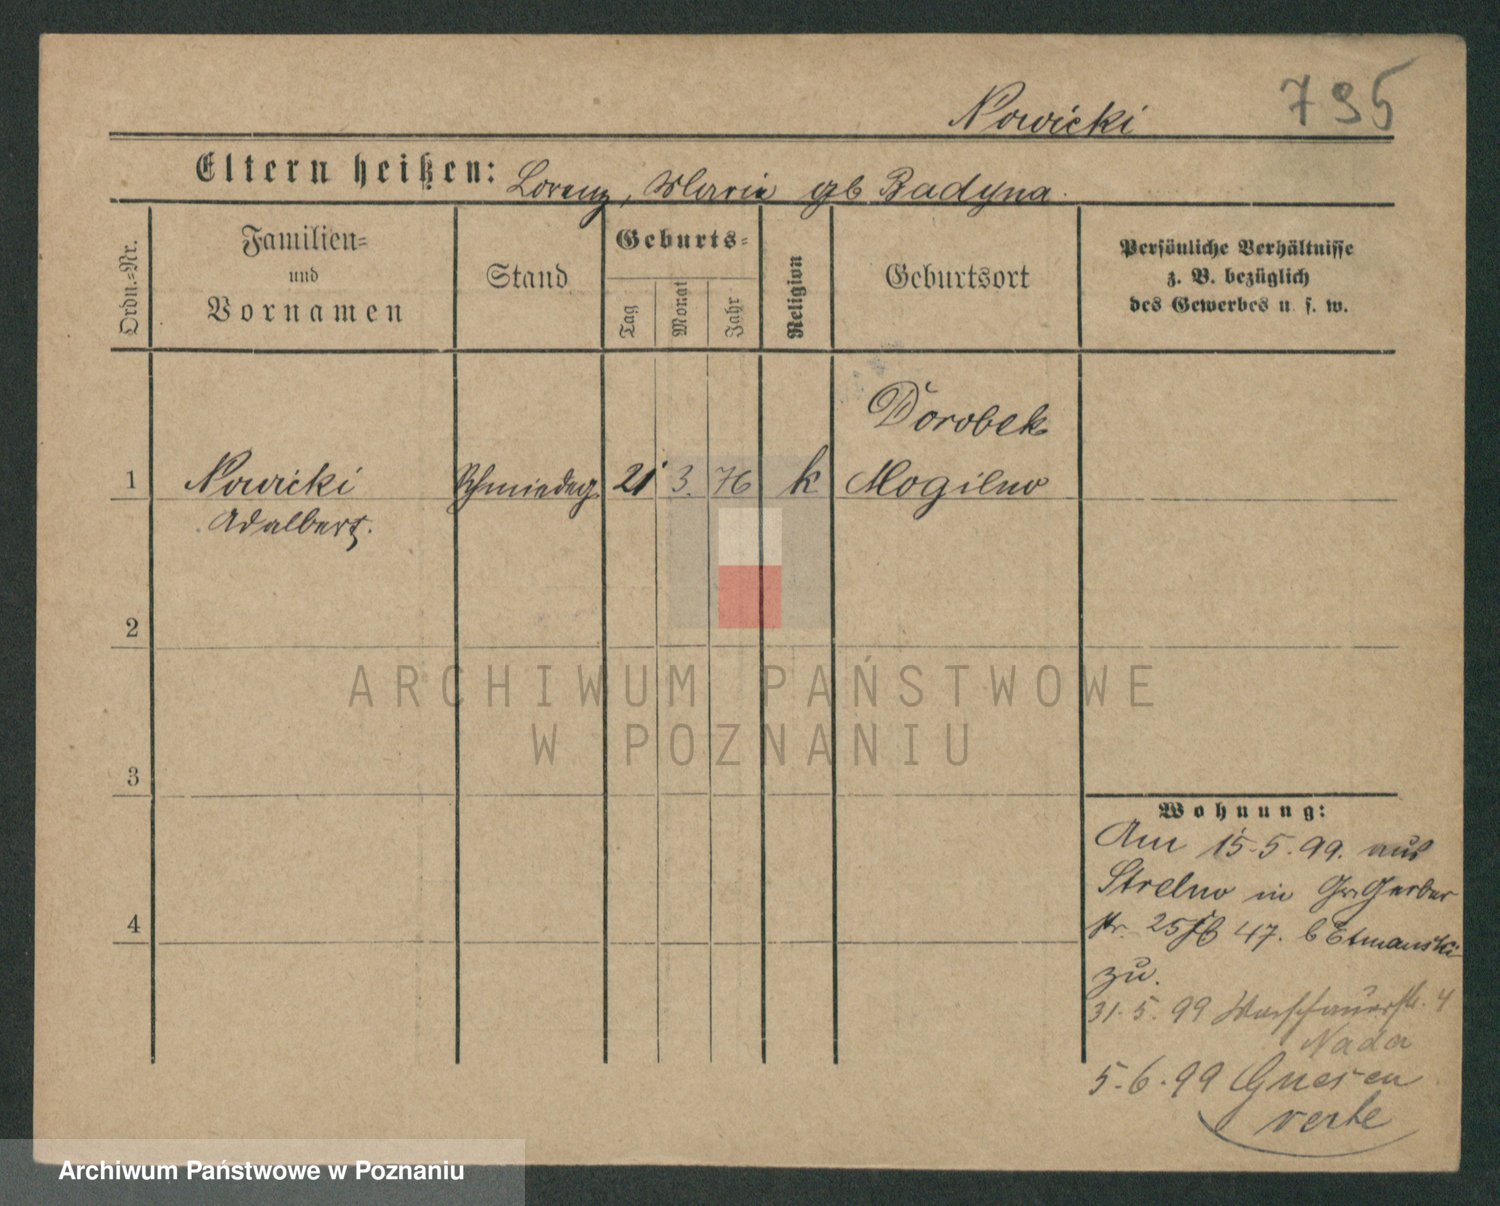 795
Nowicki
Eltern heißen: Lorenz, Maria gb Radyna.
Ordn.=Nr.
Familien=
und
Vornamen
Stand
Geburts=
Tag
Monat
Jahr
Religion
Geburtsort
Persönliche Verhältnisse
z. B. bezüglich
des Gewerbes u. s. w.
Dorobek
1 Nowicki Schmiedeg. 21 3. 76 k Mogilno
Adalbert.
2
3
4
Wohnung:
Am 15.5.99. aus
Strelno in Gr. Gerber
str. 25 47. b Etmanski
zu.
31.5.99 Warschauerstr. 4
Nada
5.6.99 Gnesen
verte
ARCHIWUM PAŃSTWOWE
W POZNANIU
Archiwum Państwowe w Poznaniu